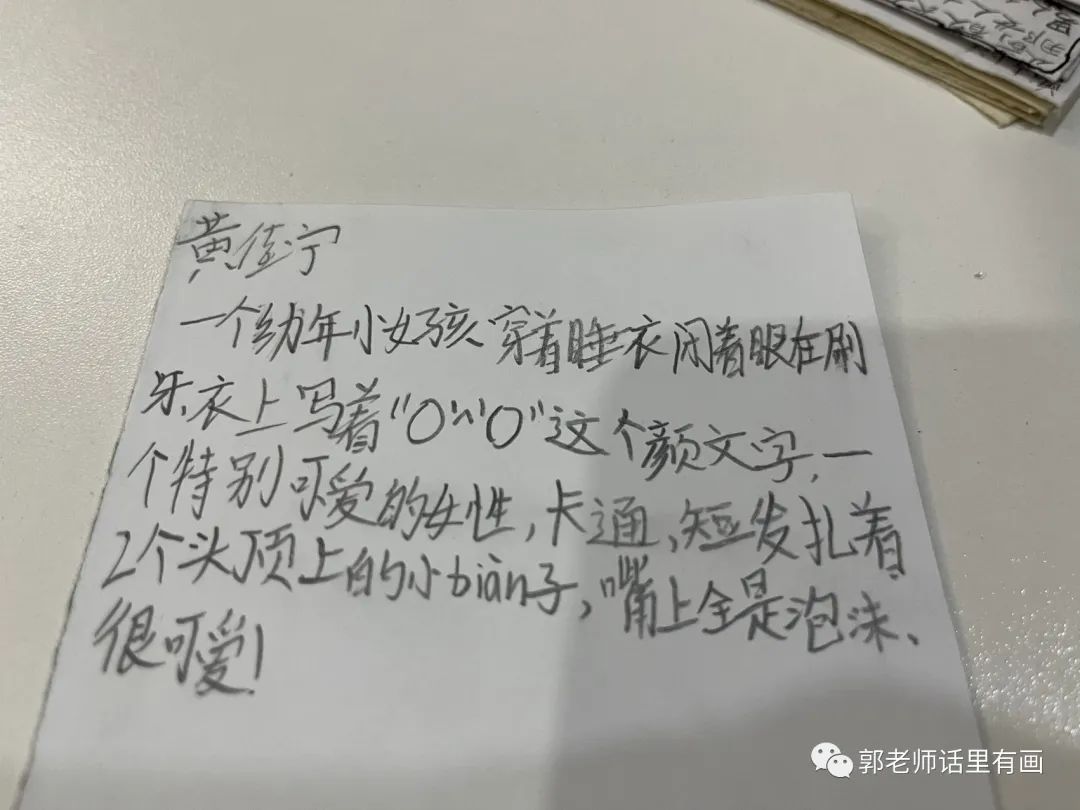 黄佳宁
一个幼年小女孩穿着睡衣闭着眼在刷
牙、衣上写着“O^^O”这个颜文字,一
个特别可爱的女性,卡通、短发扎着
2个头顶上的小biàn子,嘴上全是泡沫、
很可爱!
郭老师话里有画